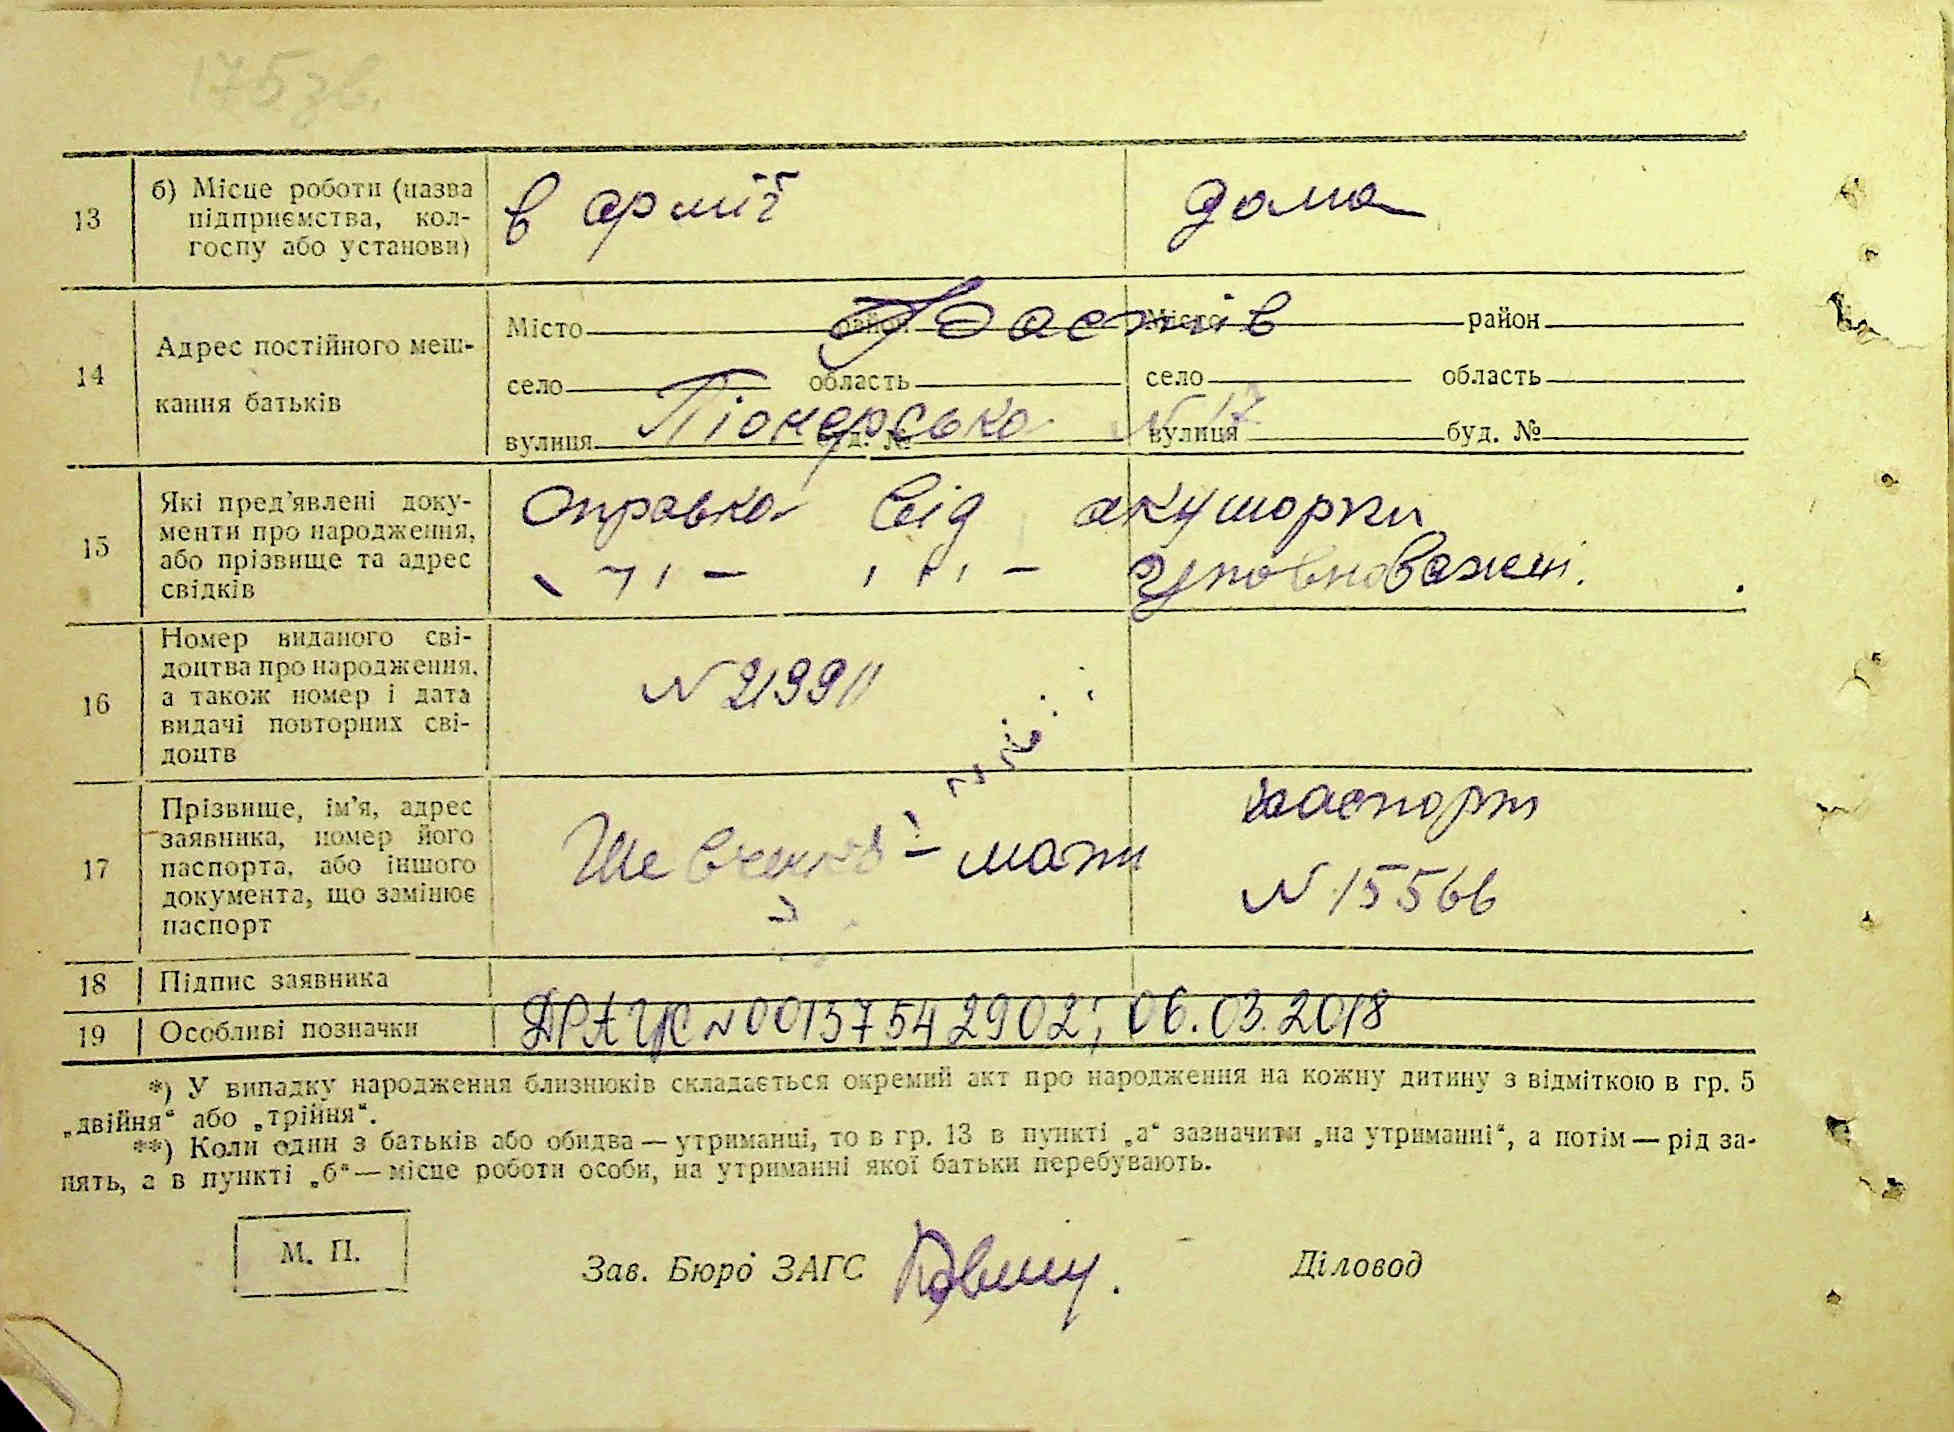 175зв.
13 б) Місце роботи (назва підприємства, кол-
госпу або установи)
в армії дома
14 Адрес постійного меш-
кання батьків
Місто район Місто район
Фастів
село область село область
Піонерська N 17
вулиця буд. № вулиця буд. №
15 Які пред'явлені доку-
менти про народження,
або прізвище та адрес
свідків
Справка від акушорки
уповноважені.
16 Номер виданого сві-
доцтва про народження,
а також номер і дата
видачі повторних сві-
доцтв
N 219911
17 Прізвище, ім'я, адрес
заявника, номер його
паспорта, або іншого
документа, що замінює
паспорт
Шевченко – мати
паспорт
N 15566
18 Підпис заявника
19 Особливі позначки
ДРАЦС N 00137542902; 06.03.2018
*) У випадку народження близнюків складається окремий акт про народження на кожну дитину з відміткою в гр. 5
„двійня“ або „трійня“.
**) Коли один з батьків або обидва — утриманці, то в гр. 13 в пункті „а“ зазначити „на утриманні“, а потім — рід за-
нять, а в пункті „б“ — місце роботи особи, на утриманні якої батьки перебувають.
М. П.
Зав. Бюро ЗАГС Діловод